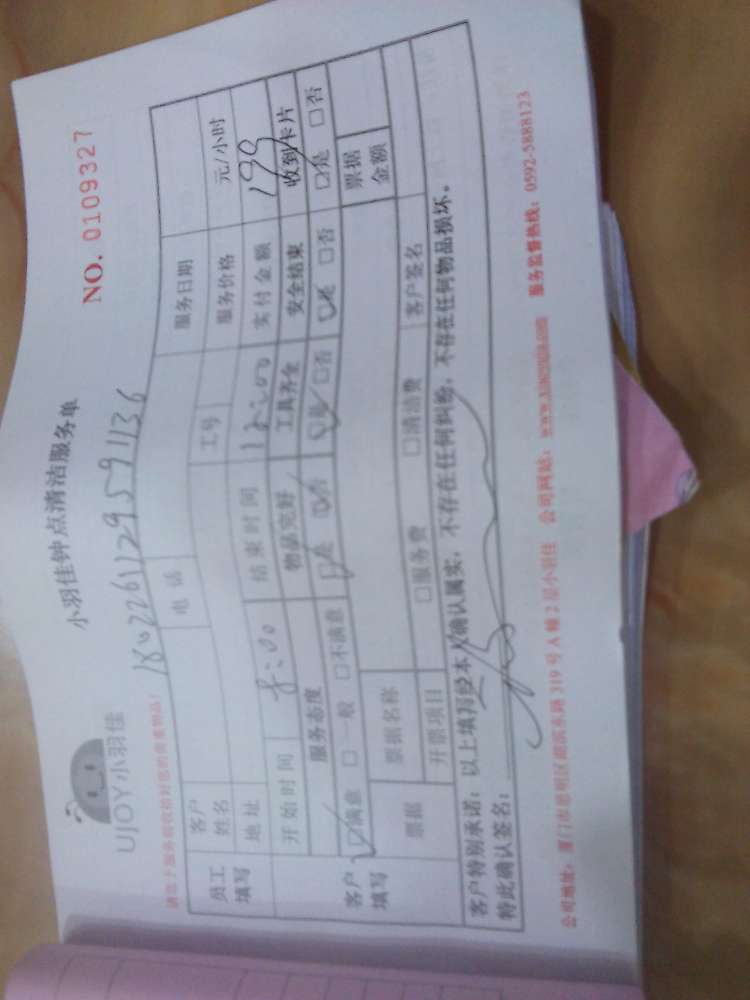 UJOY小羽佳
小羽佳钟点清洁服务单
NO. 0109327
1802261129591136
员工填写
客户姓名
电话
服务日期
地址
工号
服务价格
元/小时
开始时间 8:00
结束时间 12:00
实付金额 199
客户填写
服务态度
物品完好
工具齐全
安全结束
收到卡片
满意 □一般 □不满意
□是 □否
□是 □否
□是 □否
□是 □否
票据
票据名称
票据金额
开票项目
□服务费
□清洁费
客户签名
客户特别承诺：以上填写经本人确认属实，不存在任何纠纷，不存在任何物品损坏。
特此确认签名：
公司地址：厦门市思明区湖滨东路319号A幢2层小羽佳 公司网站： 服务监督热线：0592-5888123